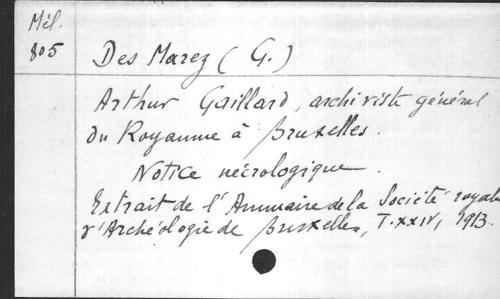 Mél.
805
Des Marez (G.)
Arthur Gaillard, archiviste général
du Royaume à Bruxelles.
Notice nécrologique.
Extrait de l'Annuaire de la Société royale
d'Archéologie de Bruxelles, T. XXIV, 1913.